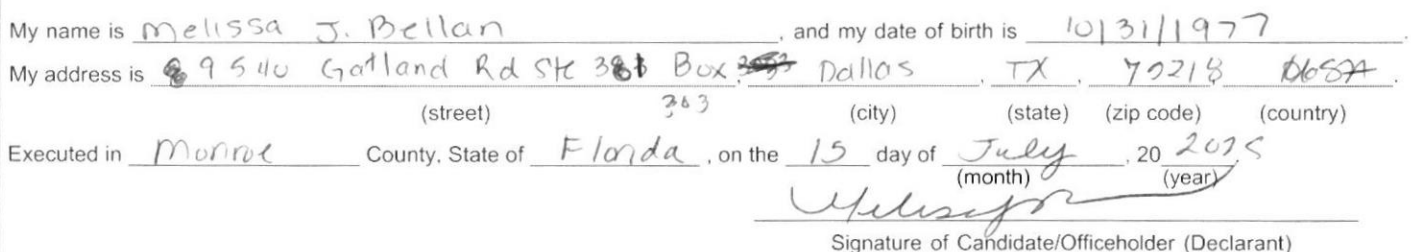 My name is Melissa J. Bellan, and my date of birth is 10/31/1977.
My address is 9540 Gatland Rd Ste 381 Box, Dallas, TX, USA.
363
(street) (city) (state) (zip code) (country)
Executed in Monroe County, State of Florida, on the 15 day of July, 20 2025
(month) (year)
Signature of Candidate/Officeholder (Declarant)